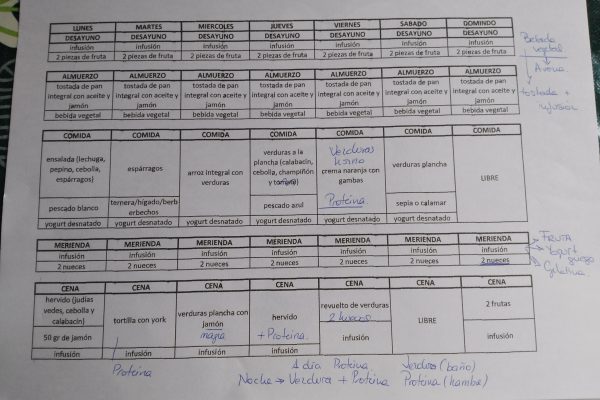 LUNES MARTES MIERCOLES JUEVES VIERNES SABADO DOMINGO
DESAYUNO DESAYUNO DESAYUNO DESAYUNO DESAYUNO DESAYUNO DESAYUNO
infusión infusión infusión infusión infusión infusión infusión
2 piezas de fruta 2 piezas de fruta 2 piezas de fruta 2 piezas de fruta 2 piezas de fruta 2 piezas de fruta 2 piezas de fruta
Bebida
vegetal
Avena
tostada +
infusión
ALMUERZO ALMUERZO ALMUERZO ALMUERZO ALMUERZO ALMUERZO ALMUERZO
tostada de pan tostada de pan tostada de pan tostada de pan tostada de pan tostada de pan tostada de pan
integral con aceite y integral con aceite y integral con aceite y integral con aceite y integral con aceite y integral con aceite y integral con aceite y
jamón jamón jamón jamón jamón jamón jamón
bebida vegetal bebida vegetal bebida vegetal bebida vegetal bebida vegetal bebida vegetal bebida vegetal
COMIDA COMIDA COMIDA COMIDA COMIDA COMIDA COMIDA
ensalada (lechuga,
pepino, cebolla,
espárragos)
pescado blanco
yogurt desnatado
espárragos
ternera/hígado/berb
erbechos
yogurt desnatado
arroz integral con
verduras
yogurt desnatado
verduras a la
plancha (calabacín,
cebolla, champiñón
y tomate)
pescado azul
yogurt desnatado
Verduras
horno
crema naranja con
gambas
Proteína
yogurt desnatado
verduras plancha
sepia o calamar
yogurt desnatado
LIBRE
MERIENDA MERIENDA MERIENDA MERIENDA MERIENDA MERIENDA MERIENDA
infusión infusión infusión infusión infusión infusión infusión
2 nueces 2 nueces 2 nueces 2 nueces 2 nueces 2 nueces 2 nueces
FRUTA
Yogurt
griego
Gelatina
CENA CENA CENA CENA CENA CENA CENA
hervido (judías
vedes, cebolla y
calabacín)
50 gr de jamón
infusión
tortilla con york
infusión
verduras plancha con
jamón
infusión
hervido
+ Proteína
infusión
revuelto de verduras
2 huevos
infusión
LIBRE
2 frutas
infusión
Proteína
1 día Proteína
Noche → Verdura + Proteína
Verdura (baño)
Proteína (hambre)